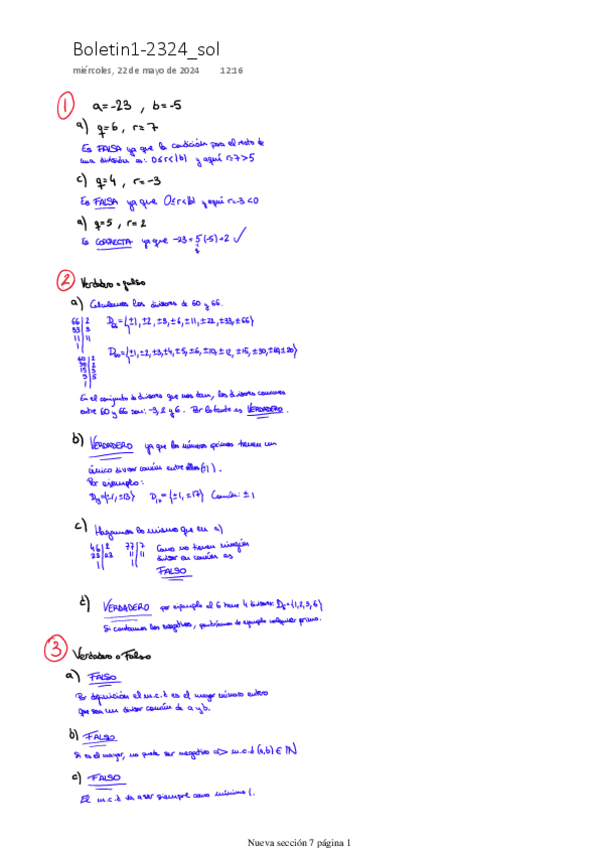 Boletin1-2324_sol
miércoles, 22 de mayo de 2024 12:16
1 a=-23 , b=-5
a) q=6 , r=7
Es FALSA ya que la condición para el resto de
una división es: 0≤r<|b| y aquí r=7>5
c) q=4 , r=-3
Es FALSA ya que 0≤r<|b| y aquí r=-3<0
a) q=5 , r=2
Es CORRECTA ya que -23=5(-5)+2 ✓
2 Verdadero o falso
a) Calculamos los divisores de 60 y 66.
66|2
33|3
11|11
1|
D66={±1,±2,±3,±6,±11,±22,±33,±66}
60|2
D60={±1,±2,±3,±4,±5,±6,±10,±12,±15,±30,±60,±20}
En el conjunto de divisores que nos dan, los divisores comunes
entre 60 y 66 son: -3, 2 y 6. Por lo tanto es VERDADERO.
b) VERDADERO ya que los números primos tienen un
único divisor común entre ellos (±1).
Por ejemplo:
={±1,±13} D17={±1,±17} Común: ±1
c) Hagamos lo mismo que en a)
46|2 77|7 Como no tienen ningún
23|23 11|11 divisor en común es
1| 1| FALSO
c) VERDADERO por ejemplo el 6 tiene 4 divisores: D6={1,2,3,6}
Si contamos los negativos, pondríamos de ejemplo cualquier primo.
3 Verdadero o Falso
a) FALSO
Por definición el m.c.d es el mayor número entero
que sea un divisor común de a y b.
b) FALSO
Si es el mayor, no puede ser negativo => m.c.d (a,b) ∈ IN
c) FALSO
El m.c.d va a ser siempre como mínimo 1.
Nueva sección 7 página 1